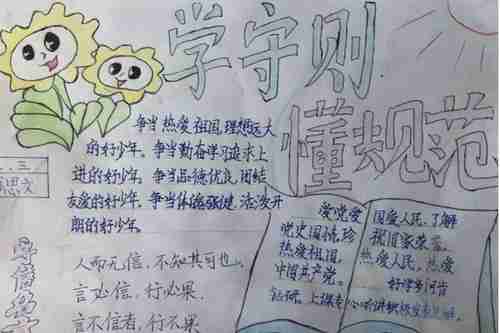 学守则
懂规范
争当热爱祖国,理想远大
的好少年。争当勤奋学习追求上
进的好少年,争当品德优良,团结
友爱的好少年,争当体魄强健,活泼开
朗的好少年。
二.三
人而无信,不知其可也。
言必信,行必果.
言不信者,行不果.
爱党爱
党史国情,珍
热爱祖国,
中国共产党。
钻研。上课专
国爱人民.了解
视国家荣誉。
热爱人民,热爱
好学多问肯
心听讲积极发表见解.